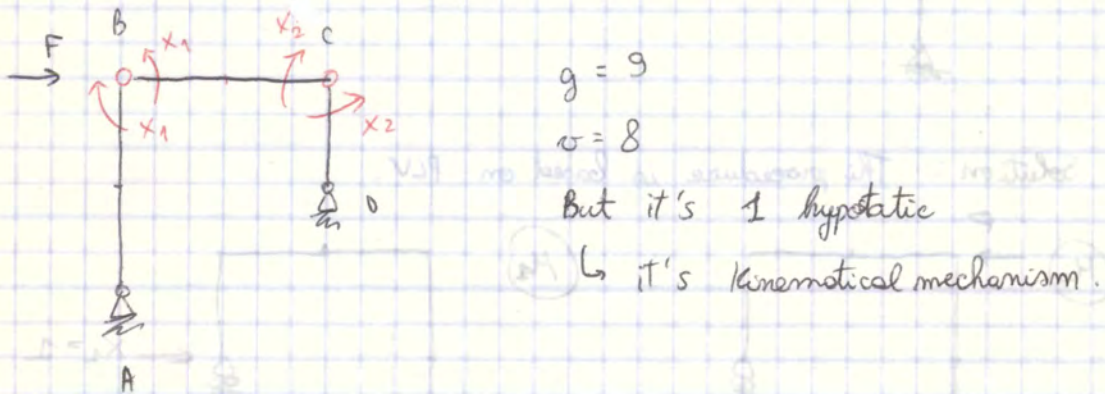 B
X2
C
F
X1
X1
X2
g = 9
v = 8
D
But it's 1 hypostatic
↳ it's kinematical mechanism.
A